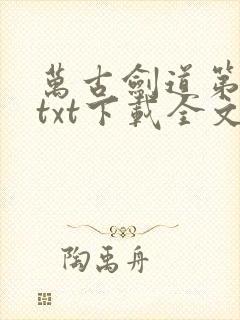 萬古劍道第
txt下載全文
陶禹舟